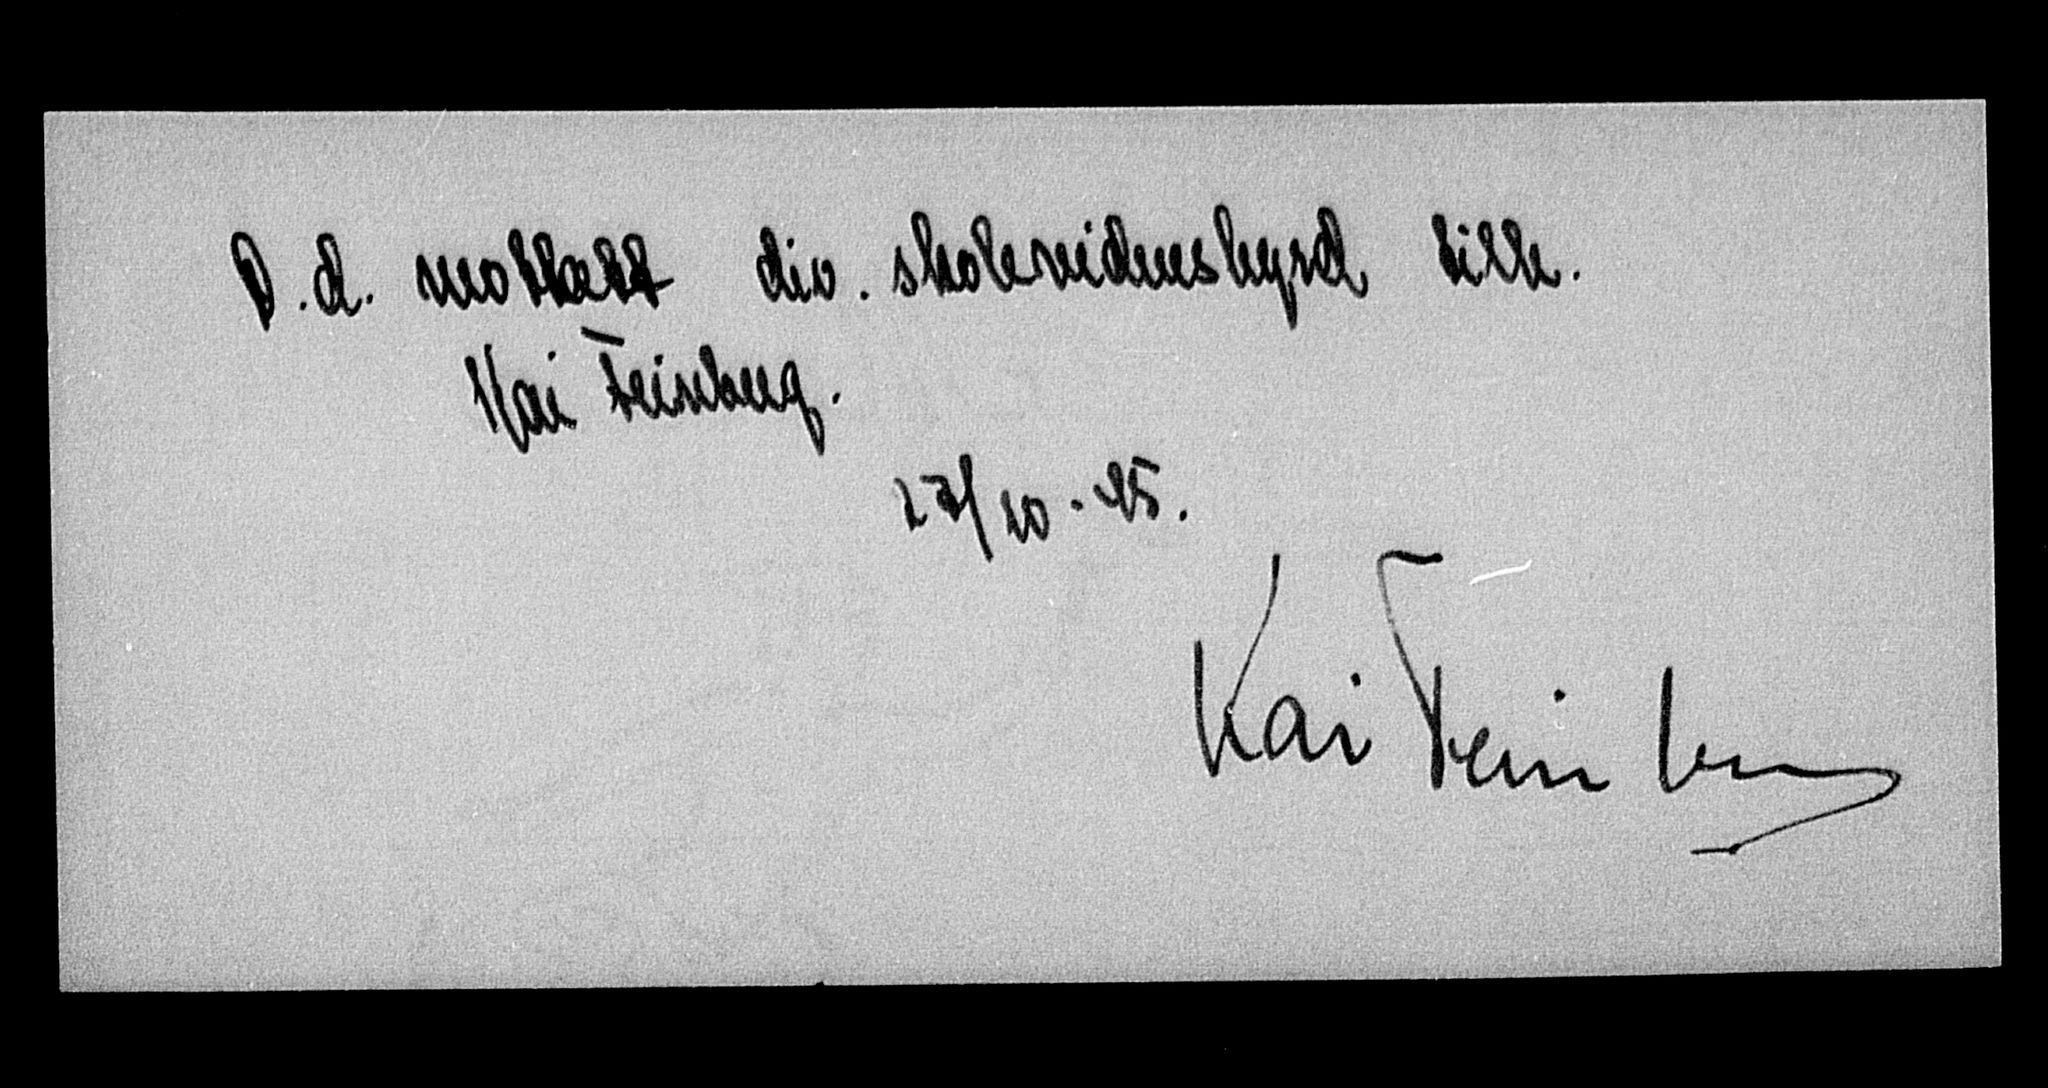 D.d. mottatt div. skolevidneshyrd tilh.
Kai Feinberg.
27/10-45.
Kai Feinberg